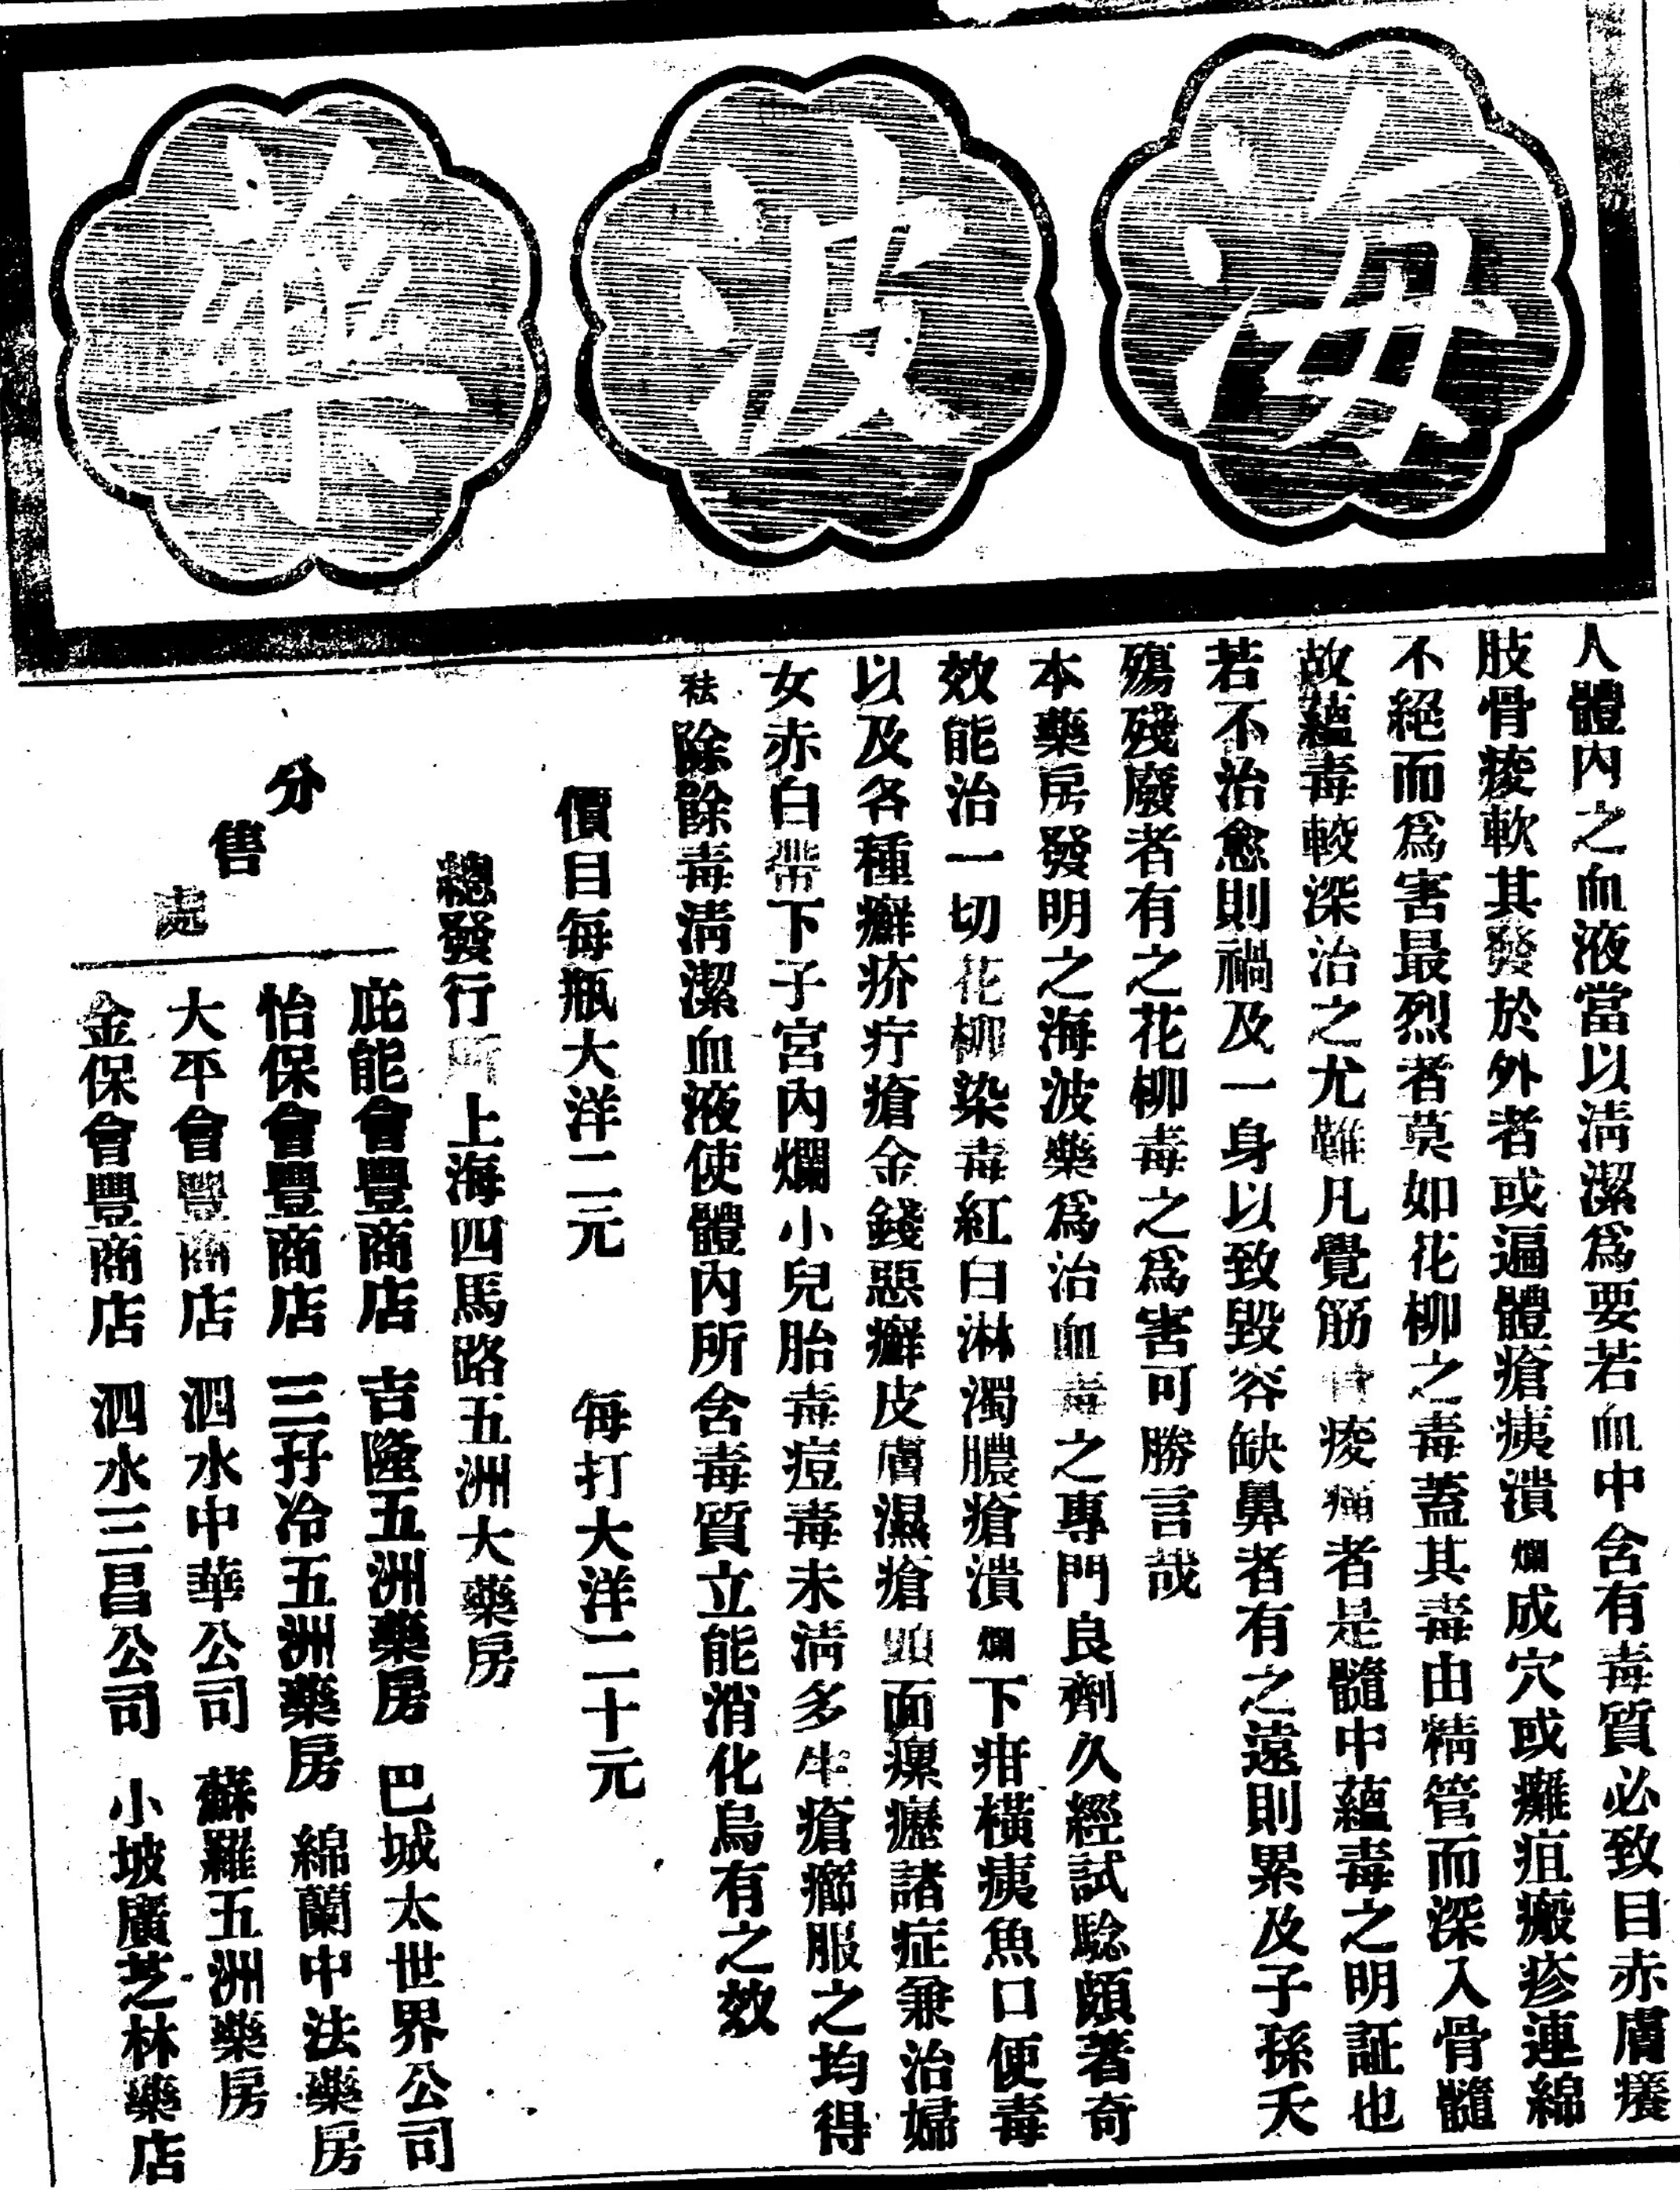 海波藥
人體內之血液當以清潔爲要若血中含有毒質必致目赤膚癢
肢骨痠軟其發於外者或遍體瘡痍潰爛成穴或癱疽瘢疹連綿
不絕而爲害最烈者莫如花柳之毒蓋其毒由精管而深入骨髓
故蘊毒較深治之尤難凡覺筋骨痠痛者是髓中蘊毒之明証也
若不治愈則禍及一身以致毀容缺鼻者有之遠則累及子孫夭
殤殘廢者有之花柳毒之爲害可勝言哉
本藥房發明之海波藥爲治血毒之專門良劑久經試騐頗著奇
效能治一切花柳染毒紅白淋濁膿瘡潰爛下疳橫痍魚口便毒
以及各種癬疥疔瘡金錢惡癬皮膚濕瘡頭面瘰癧諸症兼治婦
女赤白帶下子宮內爛小兒胎毒痘毒未清多生瘡癤服之均得
祛除餘毒清潔血液使體內所含毒質立能消化烏有之效
價目每瓶大洋二元 每打大洋二十元
總發行所上海四馬路五洲大藥房
分售處
庇能會豐商店 吉隆五洲藥房 巴城太世界公司
怡保會豐商店 三孖冷五洲藥房 綿蘭中法藥房
大平會豐商店 泗水中華公司 蘇羅五洲藥房
金保會豐商店 泗水三昌公司 小坡廣芝林藥店